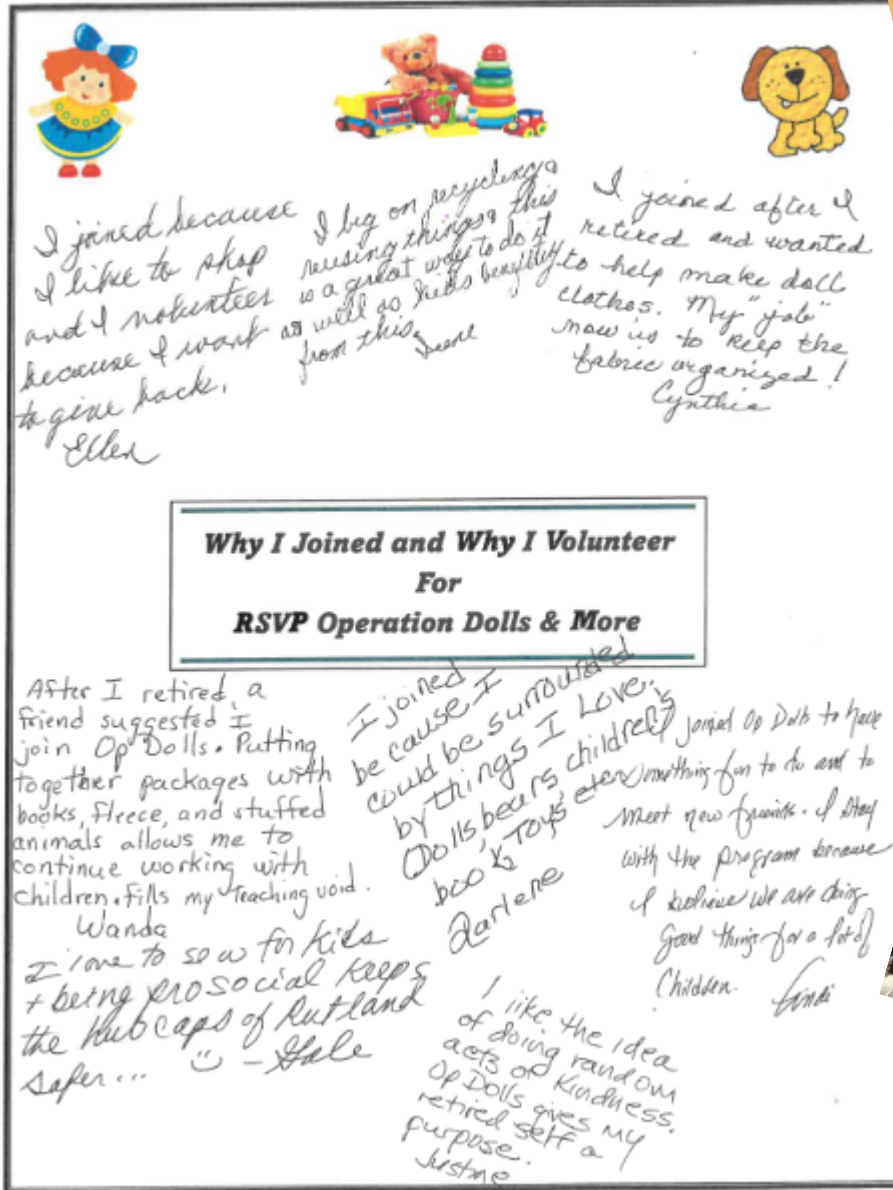 I joined because
I like to shop
and I volunteer
because I want
to give back.
Ellen
I big on recycling &
reusing things & this
is a great way to do it
as well as kids benefitting
from this.
Irene
I joined after I
retired and wanted
to help make doll
clothes. My "job"
now is to keep the
fabric organized!
Cynthia
Why I Joined and Why I Volunteer
For
RSVP Operation Dolls & More
After I retired, a
friend suggested I
join Op Dolls. Putting
together packages with
books, fleece, and stuffed
animals allows me to
continue working with
children. Fills my teaching void.
Wanda
I joined
because I
could be surrounded
by things I Love.
Dolls, bears, children's
book, Toys, etc
Darlene
I joined Op Dolls to have
something fun to do and to
meet new friends. I stay
with the program because
I believe we are doing
good things for a lot of
Children.
I love to sew for kids
+ being prosocial keeps
the hubcaps of Rutland
safer... ☺ - Gale
I like the idea
of doing random
acts of kindness.
Op Dolls gives my
retired self a
purpose.
Justine